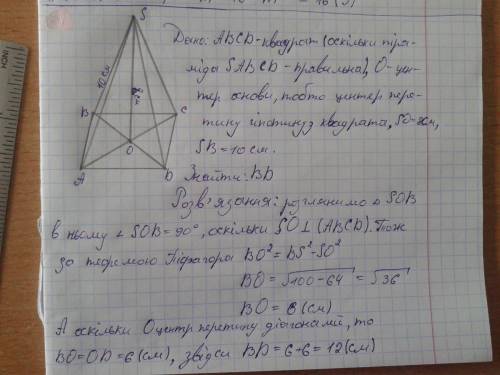 S
10 см
8 см
B
C
O
A
D
Дано: ABCD-квадрат (оскільки піра-
міда SABCD - правильна), O-цен-
тер основи, тобто центер пере-
тину гіпотинуз квадрата, SO=8см,
SB=10см.
Знайти: BD
Розв'язання: розглянимо △SOB
в ньому ∠SOB=90°, оскільки SO⊥(ABCD). Тож
за теоремою Піфагора BO²=BS²-SO²
BO=√100-64=√36
BO=6(см)
А оскільки O центр перетину діагоналей, то
BO=OD=6(см), звідси BD=6+6=12(см)